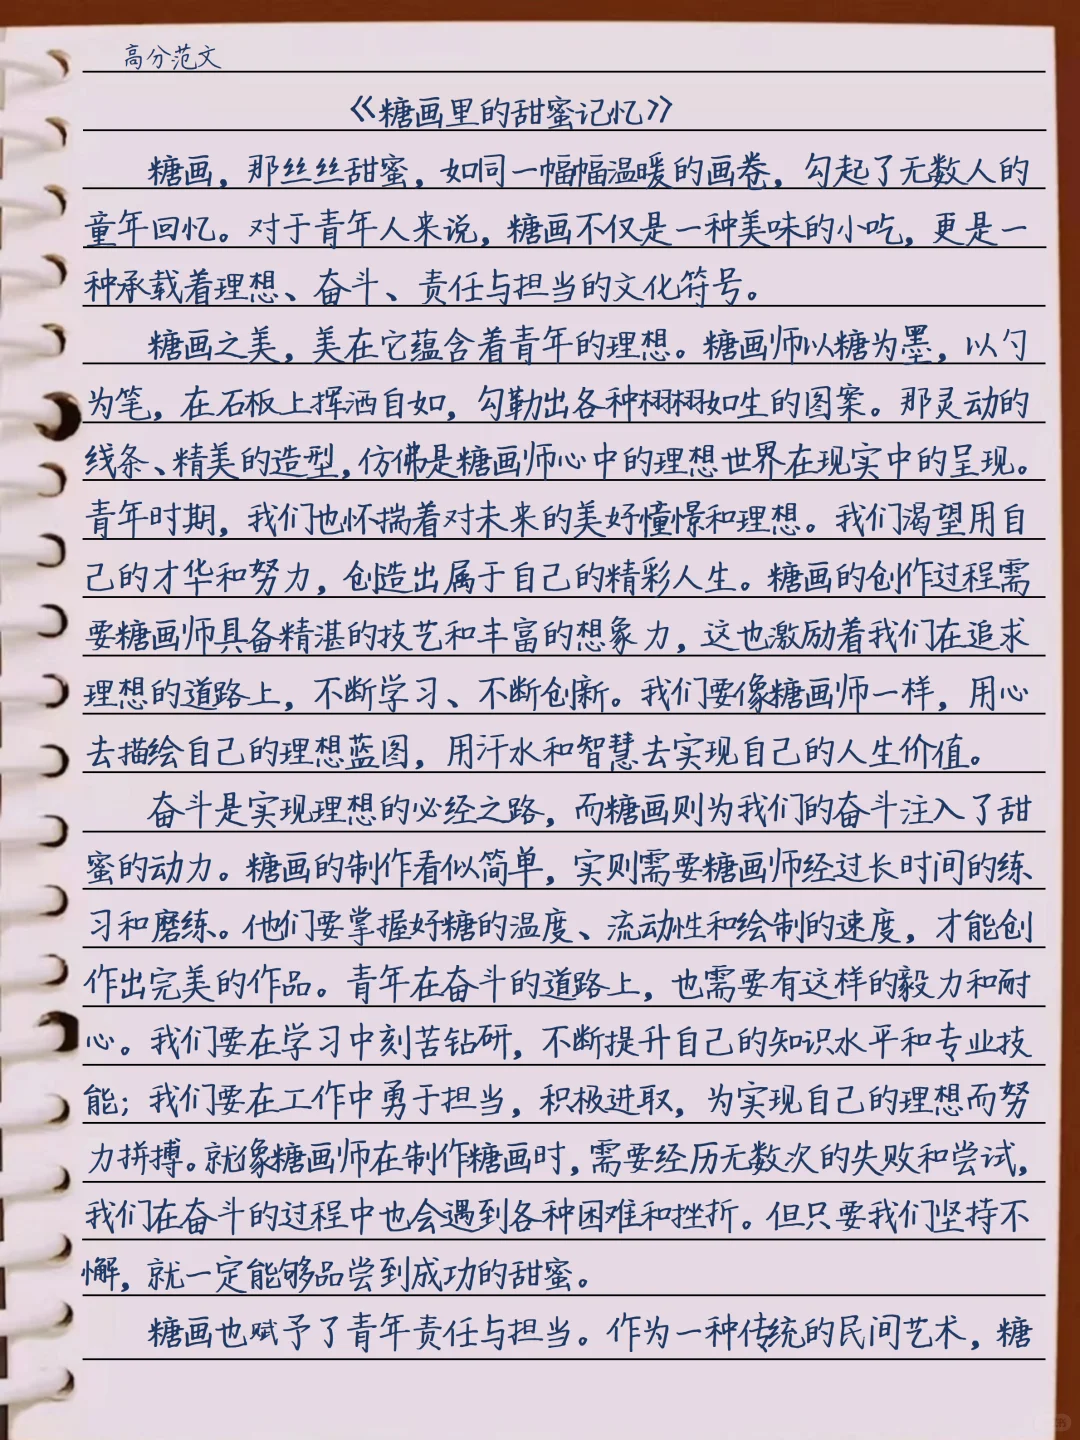 高分范文
《糖画里的甜蜜记忆》
糖画，那丝丝甜蜜，如同一幅幅温暖的画卷，勾起了无数人的
童年回忆。对于青年人来说，糖画不仅是一种美味的小吃，更是一
种承载着理想、奋斗、责任与担当的文化符号。
糖画之美，美在它蕴含着青年的理想。糖画师以糖为墨，以勺
为笔，在石板上挥洒自如，勾勒出各种栩栩如生的图案。那灵动的
线条、精美的造型，仿佛是糖画师心中的理想世界在现实中的呈现。
青年时期，我们也怀揣着对未来的美好憧憬和理想。我们渴望用自
己的才华和努力，创造出属于自己的精彩人生。糖画的创作过程需
要糖画师具备精湛的技艺和丰富的想象力，这也激励着我们在追求
理想的道路上，不断学习、不断创新。我们要像糖画师一样，用心
去描绘自己的理想蓝图，用汗水和智慧去实现自己的人生价值。
奋斗是实现理想的必经之路，而糖画则为我们的奋斗注入了甜
蜜的动力。糖画的制作看似简单，实则需要糖画师经过长时间的练
习和磨练。他们要掌握好糖的温度、流动性和绘制的速度，才能创
作出完美的作品。青年在奋斗的道路上，也需要有这样的毅力和耐
心。我们要在学习中刻苦钻研，不断提升自己的知识水平和专业技
能；我们要在工作中勇于担当，积极进取，为实现自己的理想而努
力拼搏。就像糖画师在制作糖画时，需要经历无数次的失败和尝试，
我们在奋斗的过程中也会遇到各种困难和挫折。但只要我们坚持不
懈，就一定能够品尝到成功的甜蜜。
糖画也赋予了青年责任与担当。作为一种传统的民间艺术，糖